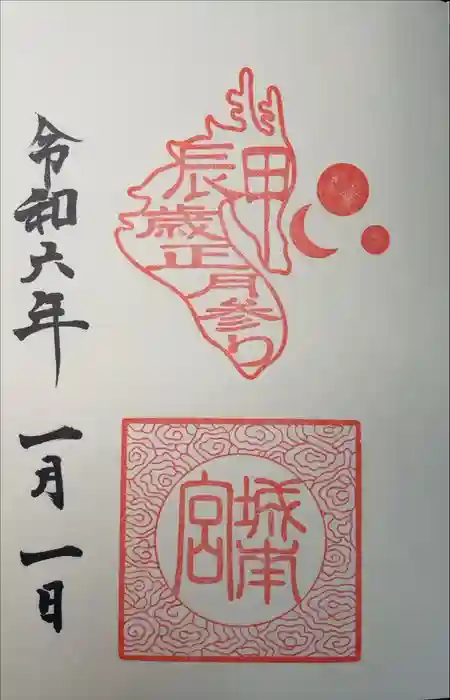 甲辰歳正月参り
城南宮
令和六年 一月一日